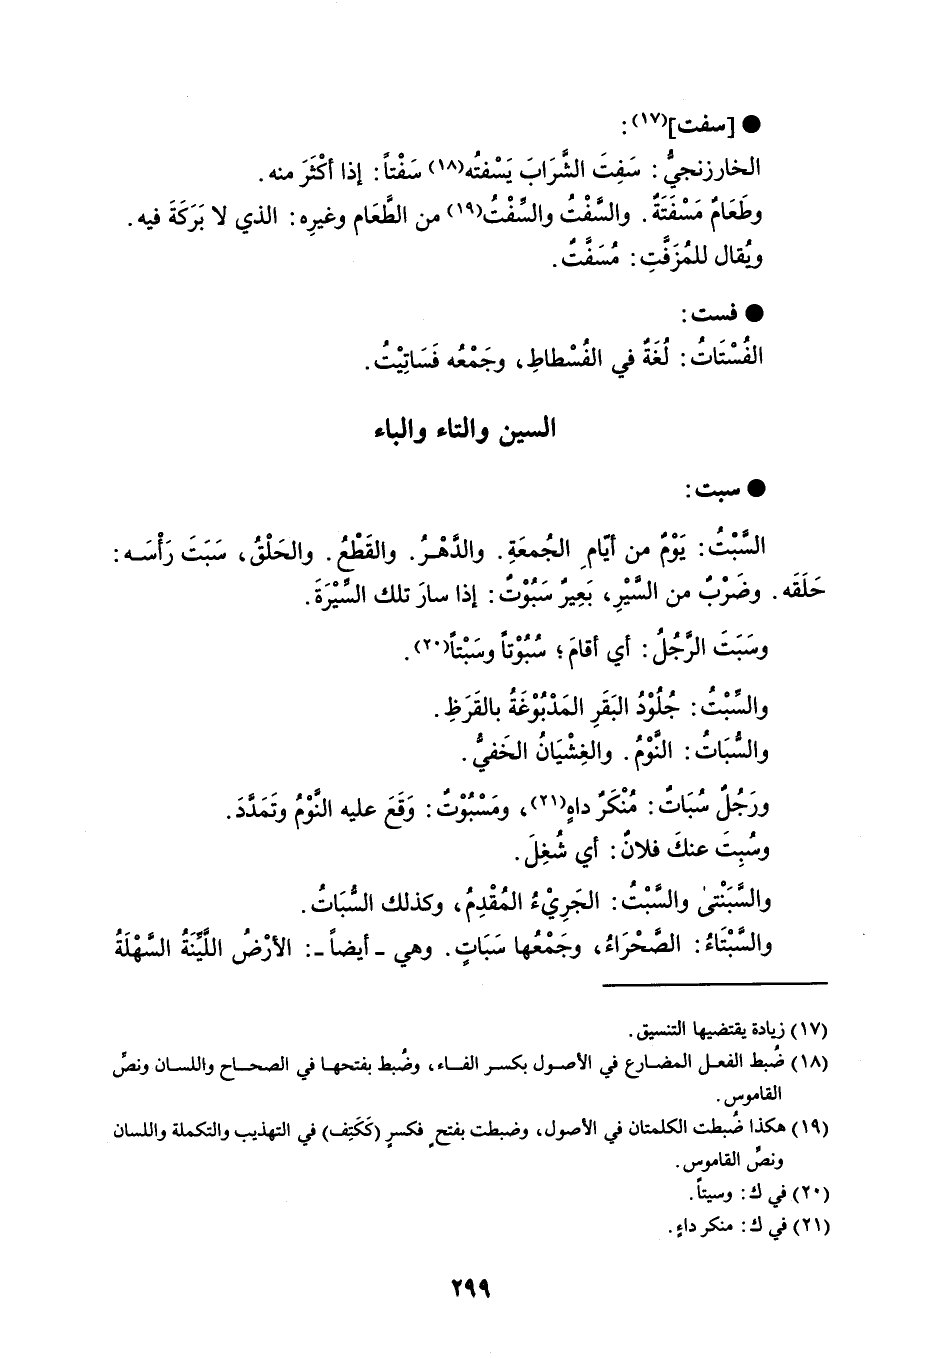 ● [سفت](١٧):
الخارزنجيُّ: سَفِتَ الشَّرَابَ يَسْفتُه(١٨) سَفْتاً: إذا أكْثَرَ منه.
وطَعَامٌ مَسْفَتَةٌ. والسَّفْتُ والسِّفْتُ(١٩) من الطَّعَام وغيرِه: الذي لا بَرَكَةَ فيه.
ويُقال للمُزَفَّتِ: مُسَفَّتٌ.
● فست:
الفُسْتَاتُ: لُغَةٌ في الفُسْطاطِ، وجَمْعُه فَسَاتِيْتُ.
السين والتاء والباء
● سبت:
السَّبْتُ: يَوْمٌ من أيّام الجُمعَةِ. والدَّهْـرُ. والقَطْعُ. والحَلْقُ، سَبَتَ رَأْسَـه:
حَلَقَه. وضَرْبٌ من السَّيْرِ، بَعِيرٌ سَبُوْتٌ: إذا سارَ تلك السِّيْرَةَ.
وسَبَتَ الرَّجُلُ: أي أقامَ؛ سُبُوْتاً وسَبْتاً(٢٠).
والسِّبْتُ: جُلُوْدُ البَقَرِ المَدْبُوْغَةُ بالقَرَظِ.
والسُّبَاتُ: النَّوْمُ. والغِشْيَانُ الخَفيُّ.
ورَجُلٌ سُبَاتٌ: مُنْكَرٌ داهٍ(٢١)، ومَسْبُوْتٌ: وَقَعَ عليه النَّوْمُ وتَمَدَّدَ.
وسُبِتَ عنكَ فلانٌ: أي شُغِلَ.
والسَّبَنْتىٰ والسَّبْتُ: الجَرِيْءُ المُقْدِمُ، وكذلك السُّبَاتُ.
والسَّبْتَاءُ: الصَّحْرَاءُ، وجَمْعُها سَبَاتٍ. وهي ـ أيضاً ـ: الأرْضُ اللَّيِّنَةُ السَّهْلَةُ
(١٧) زيادة يقتضيها التنسيق.
(١٨) ضُبط الفعـل المضـارع في الأصـول بكسـر الفـاء، وضُبط بفتحهـا في الصحـاح واللسـان ونصِّ
القاموس.
(١٩) هكذا ضُبطت الكلمتان في الأصول، وضبطت بفتحٍ فكسرٍ (كَكَتِف) في التهذيب والتكملة واللسان
ونصِّ القاموس.
(٢٠) في ك: وسيتاً.
(٢١) في ك: منكر داءٍ.
٢٩٩